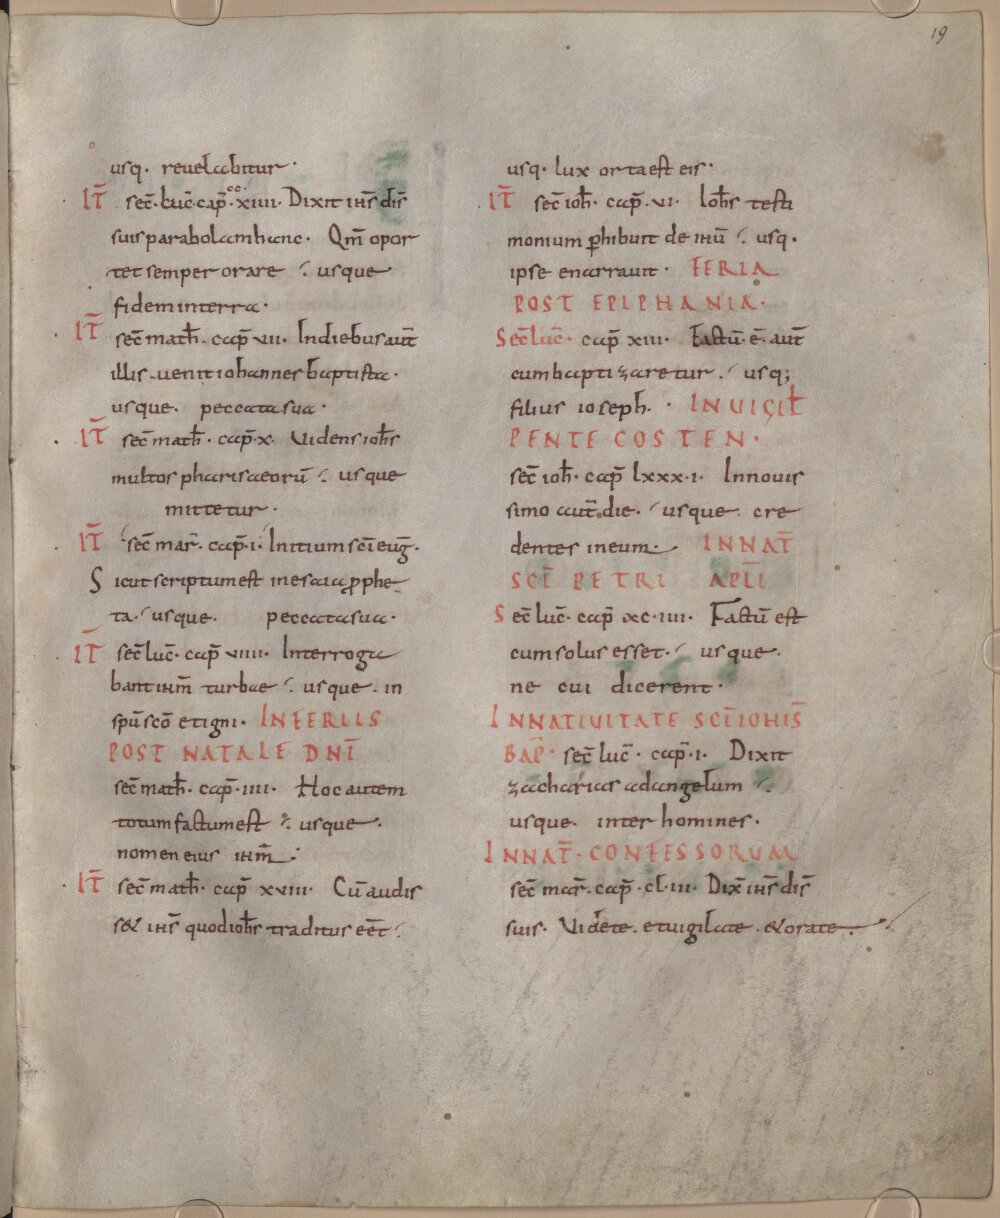 19
usq· reuelabitur·
IT̄ sec̄·luc̄·cap̄·ccxiiii· Dixit ih̄s dis̄
suis parabolam hanc· Qm̄ opor
tet semper orare ·/ usque
fidem in terra·
IT̄ sec̄ math̄· cap̄ vii· In diebus aut̄
illis· uenit iohannes baptista·
usque· peccata sua·
IT̄ sec̄ math̄· cap̄·x· Uidens ioh̄s
multos pharisaeorū ·/ usque
mittetur·
IT̄ sec̄ mar̄· cap̄·i· Initium scī euḡ·
Sicut scriptum est in esaia pphe
ta·/ usque· peccata sua·
IT̄ sec̄ luc̄· cap̄ viiii· Interroga
bant ihm̄ turbae ·/ usque· in
spū scō et igni· IN FERIIS
POST NATALE DN̄I
sec̄ math̄· cap̄·iiii· Hoc autem
totum factum est ·/ usque·
nomen eius ihm̄·
IT̄ sec̄ math̄· cap̄ xviii· Cū audis
s& ih̄s quod ioh̄s traditus eēt·/
usq· lux orta est eis·
IT̄ sec̄ ioh̄· cap̄·vi· Ioh̄s testi
monium phibuit de ihū ·/ usq·
ipse enarrauit· FERIA
POST EPIPHANIA·
Sec̄ luc̄· cap̄ xiii· Factū·ē· aut̄
cum baptizaretur·/ usq;
filius ioseph· IN UIGIL̄
PENTECOSTEN·
sec̄ ioh̄· cap̄ lxxx·i· In nouis
simo aut̄ die·/ usque· cre
dentes in eum· IN NAT̄
SCĪ PETRI APL̄I
Sec̄ luc̄· cap̄ xc·iiii· Factū est
cum solus esset·/ usque·
ne cui dicerent·
IN NATIUITATE SCĪ IOHIS̄
BAP̄· sec̄ luc̄· cap̄·i· Dixit
zacharias ad angelum ·/
usque· inter homines·
IN NAT̄· CONFESSORUM
sec̄ mar̄· cap̄·cl·iii· Dix̄ ih̄s dis̄
suis· Uidete· et uigilate· & orate·/